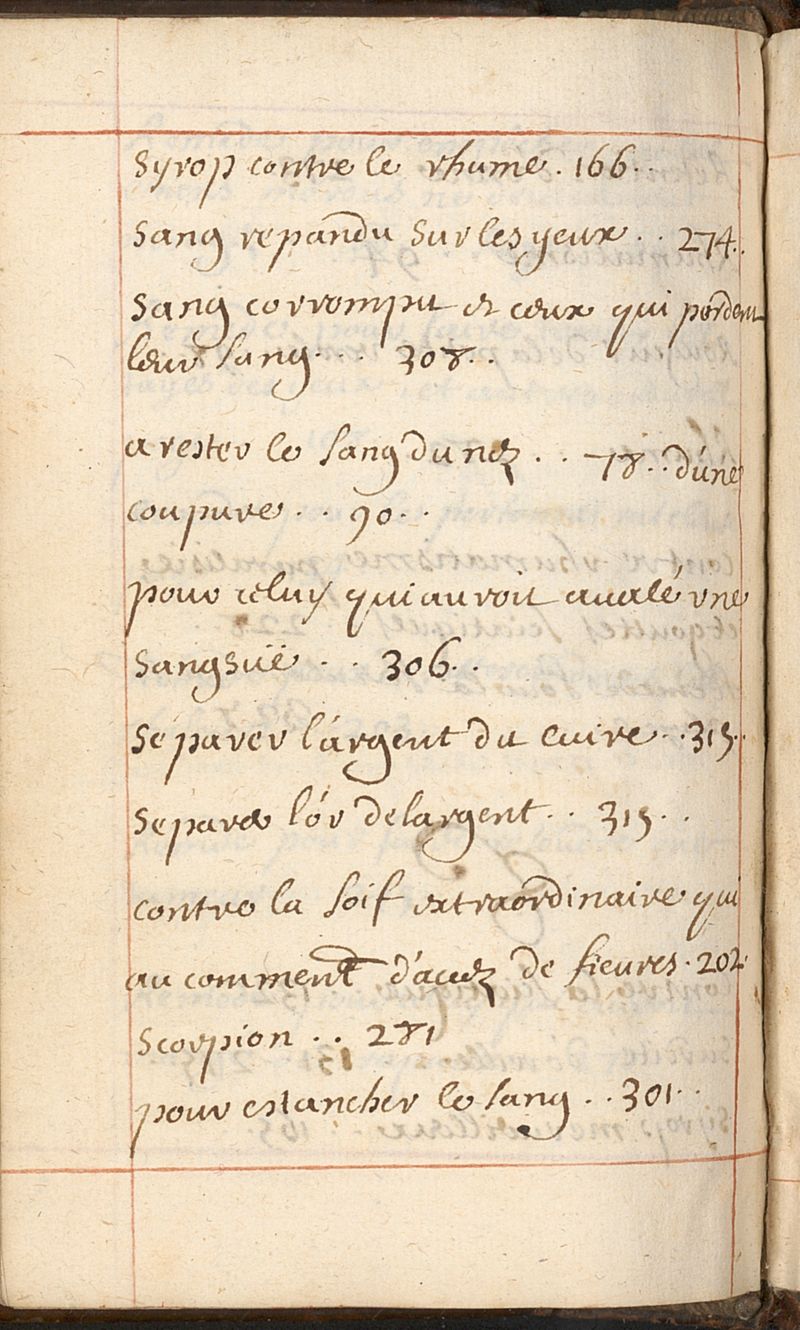 Syrop contre le rhume. 166..
Sang repandu Sur les yeux.. 274.
Sang corrompu et ceux qui perdent
leur Sang... 308..
arester le Sang du nez.. 78.. d'une
coupure.. 90..
pour celuy qui auroit aualé vne
Sangsüe.. 306..
Separer l'argent du cuivre..315.
Separer l'or de largent.. 315..
contre la Soif extraordinaire qui
au comment d'accez de fieures. 202.
Scorpion.. 281
pour estancher le Sang..301..